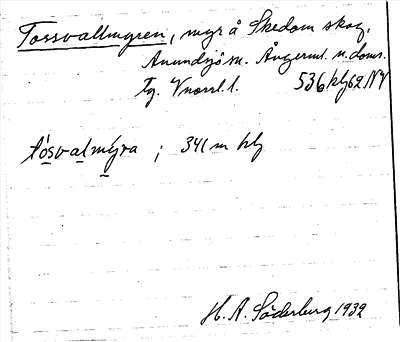 Tossvallmyren, myr å Skedom skog,
Anundsjö sn. Ångerml. n. doms.
Tg. Vnorrl. l. 536 kfg 62 NV
tósvalmýra ; 341 m hfg
H. A. Söderburg 1932